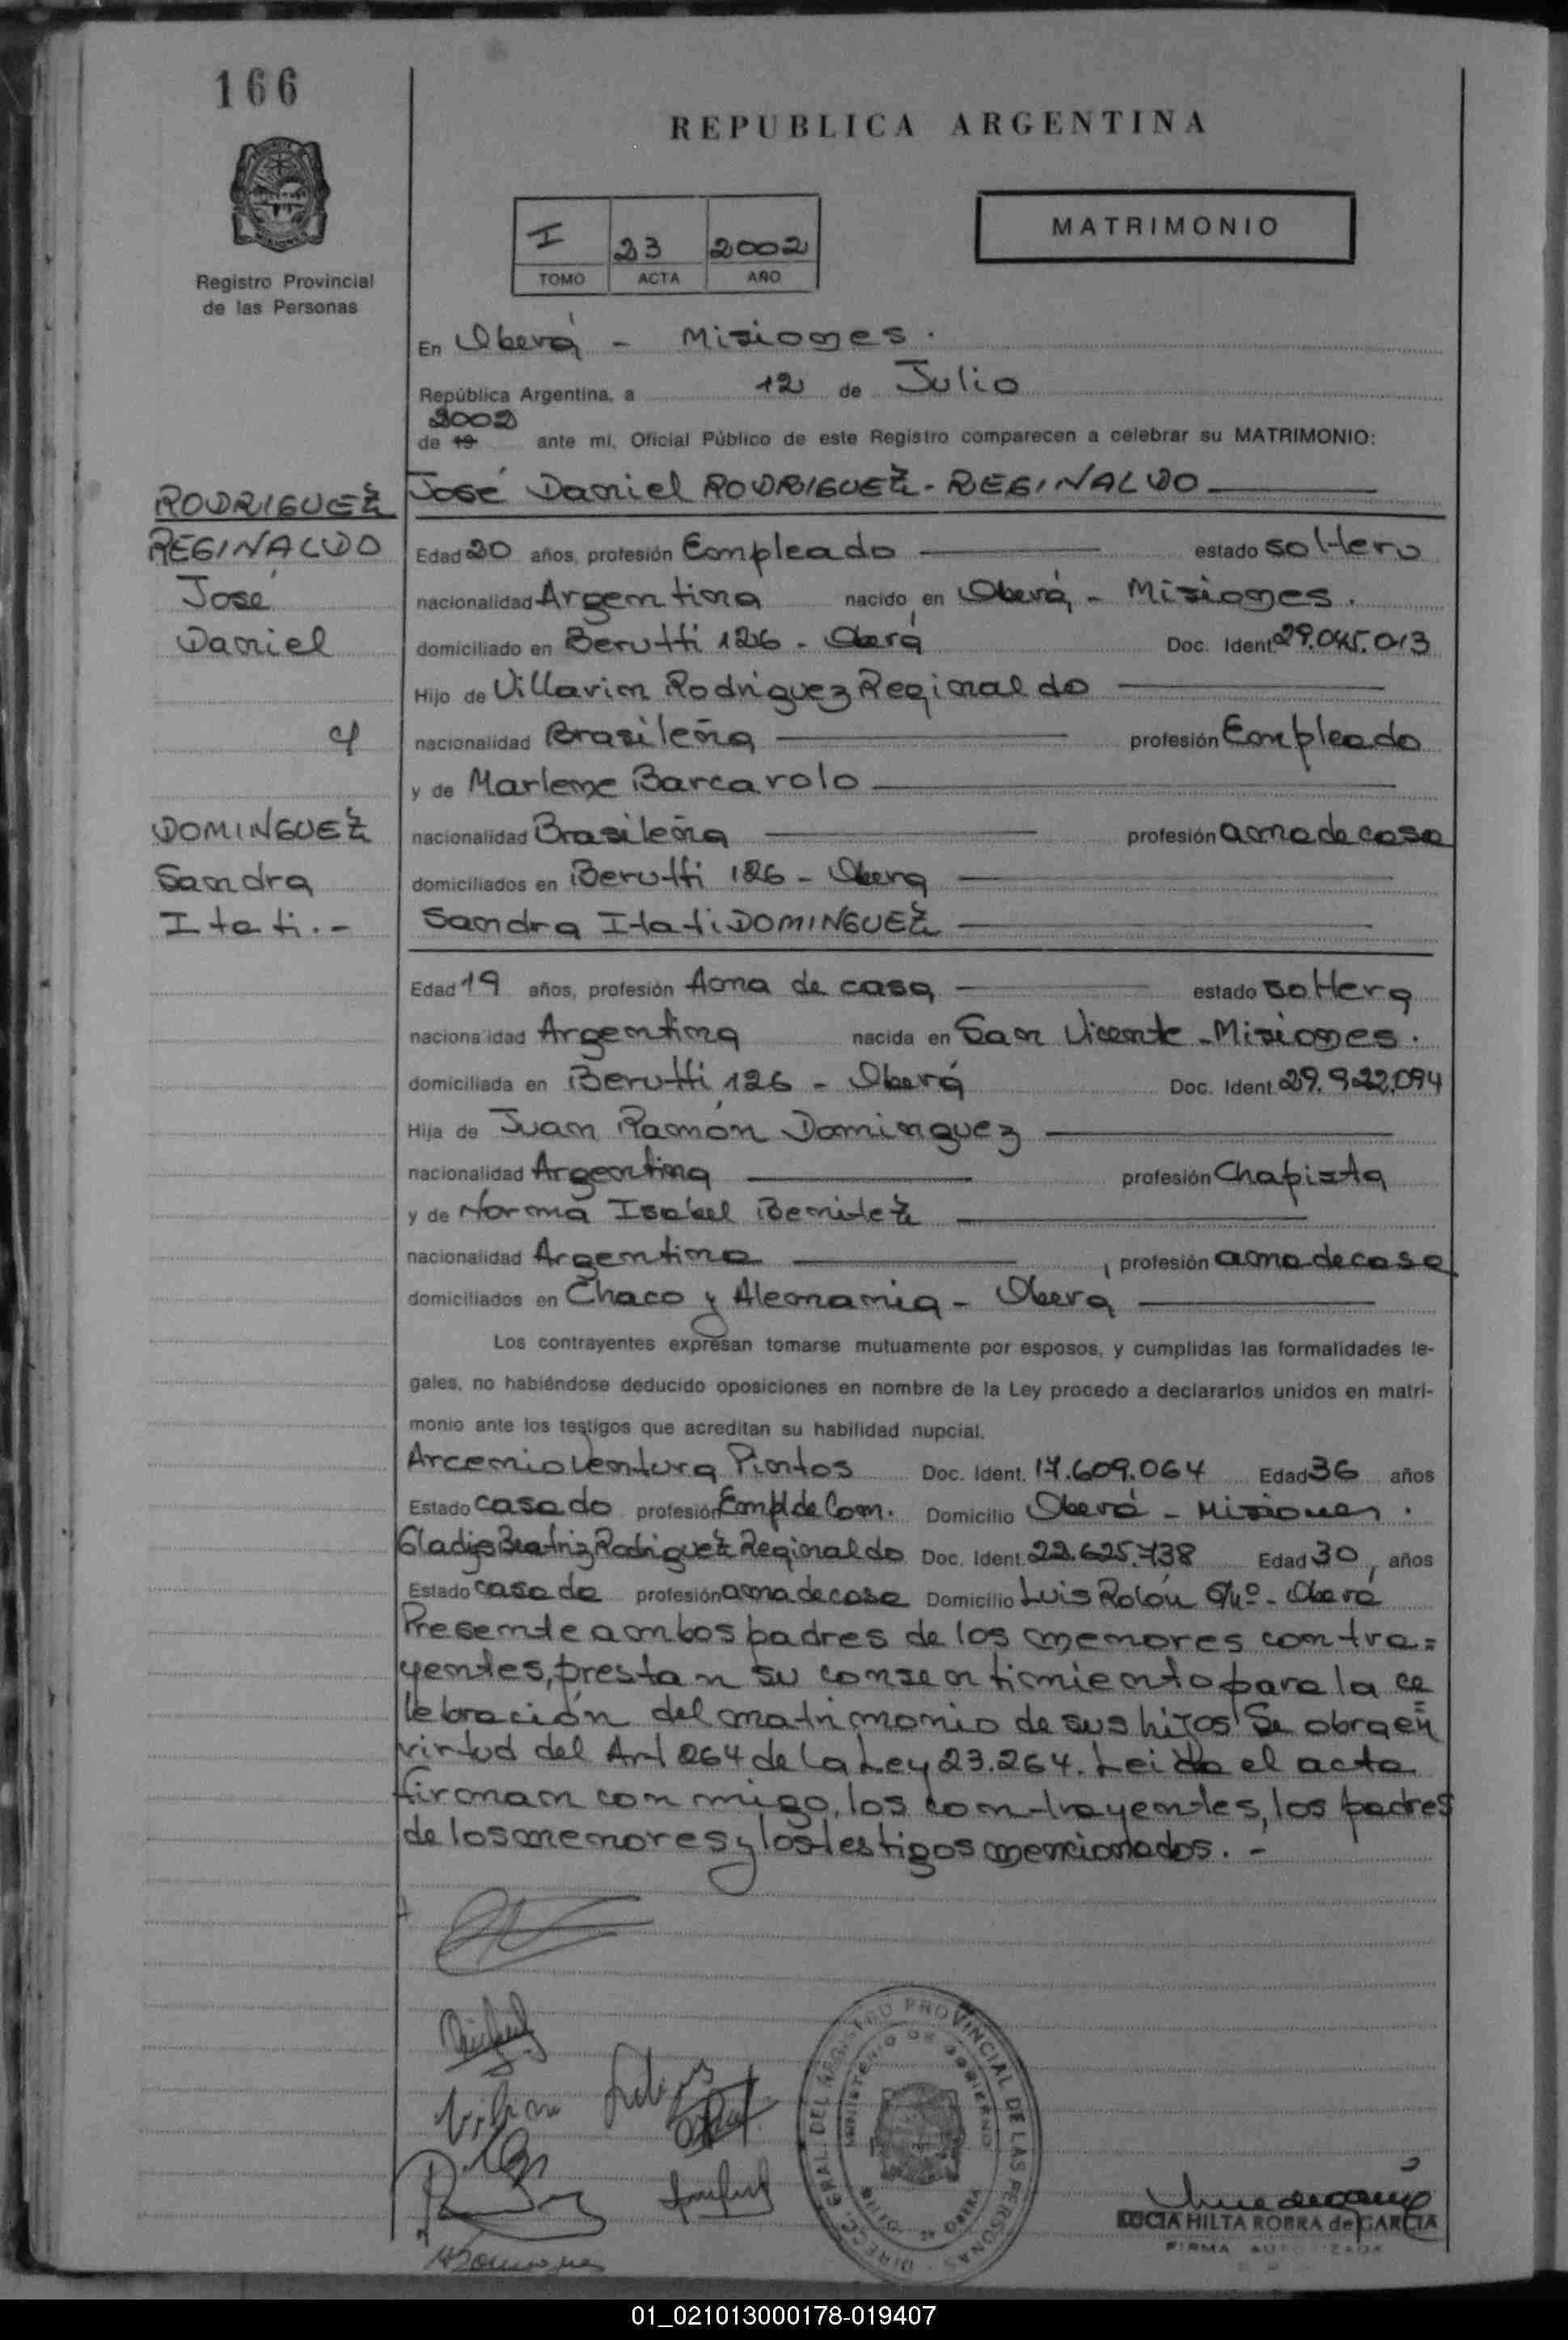 166
REPUBLICA ARGENTINA
Registro Provincial
de las Personas
I 23 2002
TOMO ACTA AÑO
MATRIMONIO
En Oberá - Misiones.
República Argentina, a 12 de Julio
2002
de 19 ante mí, Oficial Público de este Registro comparecen a celebrar su MATRIMONIO:
RODRIGUEZ
REGINALDO
José
Daniel
y
DOMINGUEZ
Sandra
Itati.-
José Daniel RODRIGUEZ - REGINALDO
Edad 20 años, profesión Empleado estado soltero
nacionalidad Argentina nacido en Oberá - Misiones.
domiciliado en Berutti 126 - Oberá Doc. Ident 29.045.013
Hijo de Villarim Rodriguez Reginaldo
nacionalidad Brasileña profesión Empleado
y de Marlene Barcarolo
nacionalidad Brasileña profesión ama de casa
domiciliados en Berutti 126 - Obera
Sandra Itati DOMINGUEZ
Edad 19 años, profesión Ama de casa estado soltera
nacionalidad Argentina nacida en San Vicente - Misiones.
domiciliada en Berutti 126 - Oberá Doc. Ident. 29.922.094
Hija de Juan Ramón Dominguez
nacionalidad Argentina profesión Chapista
y de Norma Isabel Benitez
nacionalidad Argentina profesión ama de casa
domiciliados en Chaco y Alemania - Obera
Los contrayentes expresan tomarse mutuamente por esposos, y cumplidas las formalidades le-
gales, no habiéndose deducido oposiciones en nombre de la Ley procedo a declararlos unidos en matri-
monio ante los testigos que acreditan su habilidad nupcial.
Arcemio Ventura Pintos Doc. Ident. 17.609.064 Edad 36 años
Estado casado profesión Empl de Com. Domicilio Oberá - Misiones.
Gladis Beatriz Rodriguez Reginaldo Doc. Ident. 22.625.738 Edad 30 años
Estado casada profesión ama de casa Domicilio Luis Rolón S/nº - Oberá
Presente ambos padres de los menores contra=
yentes, prestan su consentimiento para la ce
lebración del matrimonio de sus hijos Se obra en
virtud del Art 264 de la Ley 23.264. Leida el acta
firman conmigo, los contrayentes, los padres
de los menores y los testigos mencionados. -
DIRECC. GRAL. DEL REGISTRO PROVINCIAL DE LAS PERSONAS
MINISTERIO DE GOBIERNO
LUCIA HILTA ROBRA de GARCIA
FIRMA AUTORIZADA
01_021013000178-019407